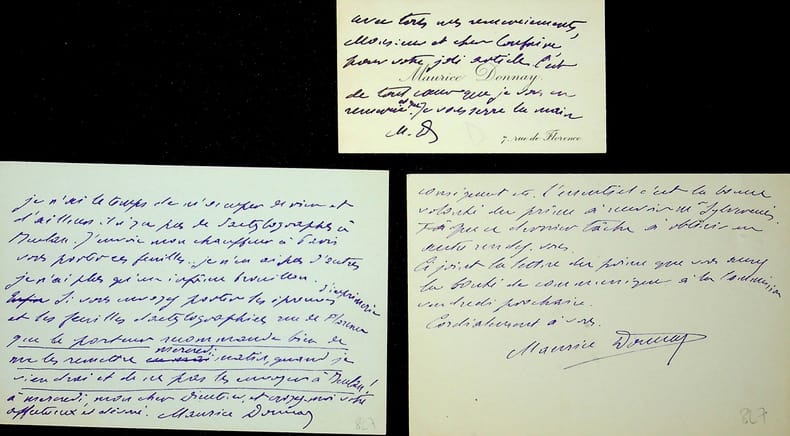 avec tous mes remerciements,
Monsieur et cher Confrère,
pour votre joli article. C'est
Maurice Donnay.
de tout cœur que je vous en
remercie et que je vous serre la main
M. D
7, rue de Florence
je n'ai le temps de m'occuper de rien et
d'ailleurs il n'y a pas de dactylographes à
J'envoie mon chauffeur à Paris
vous porter ces feuilles. je n'en ai pas d'autres
je n'ai plus qu'un infâme brouillon.
Si vous envoyez porter les épreuves d'imprimerie
et les feuilles dactylographiées rue de Florence
que le porteur recommande bien de
me les remettre mercredi matin, quand je
viendrai et de ne pas les envoyer à
à mercredi, mon cher Directeur, et croyez moi votre
affectueux et dévoué. Maurice Donnay
827
l'essentiel c'est la bonne
volonté du prince à recevoir Mr
que ce dernier tâche à obtenir un
autre rendez-vous.
Ci joint la lettre du prince que vous aurez
la bonté de communiquer à la Commission
vendredi prochain.
Cordialement à vous.
Maurice Donnay
827